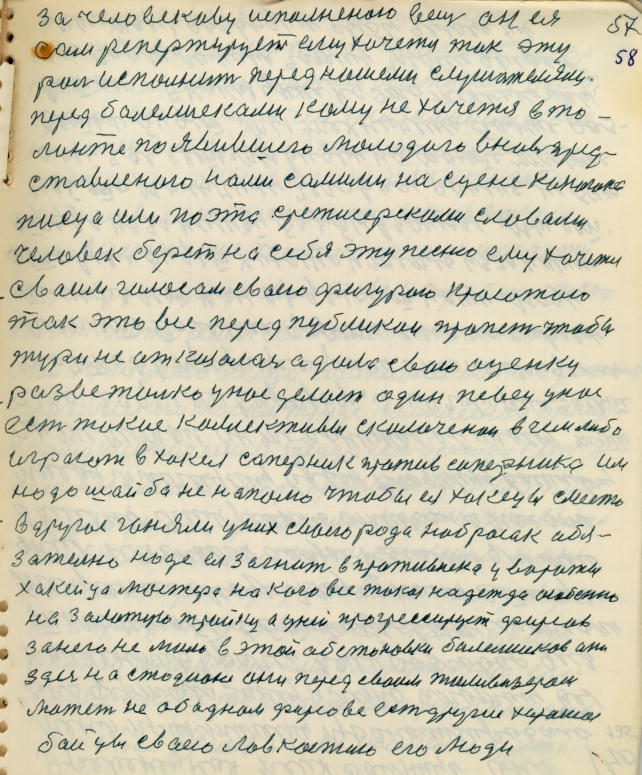 за человекову исполненою вещ он ея 57
сам репертирует ему хочетя так эту 58
рол исполнит перед нашеми слушателями.
перед балелшеками кому не хочетя в та-
ланте по явившего молодого вновь пред-
ставленого нами самими на сцене
писца или поэта срежисерскоми словами
человек берет на себя эту песню ему хочетя
сваим голосам своею фигурою красотою
так это все перед публикои пропет чтобы
жури не отказалас а дала свою оценку
разве толко уное делает один певец уное
ест такое колективы сколоченои в чем либо
играют в хокея саперник против саперника им
надо шайба не напомо чтобы ея хокеиы сместо
в другое гоняли у них своего рода набросак обя-
зателно наде ея загнат в противнека у варожи
хакейца мостера на кого все такои надежда особенно
на залотую тройку а у ней прогрессирует фирсов
занего не мало в этой обстановки балелшиков они
здес на стодионе они перед своим теливизерои
может не ободном фирсове ест другие хорошои
бойцы своего ловкостию его люди